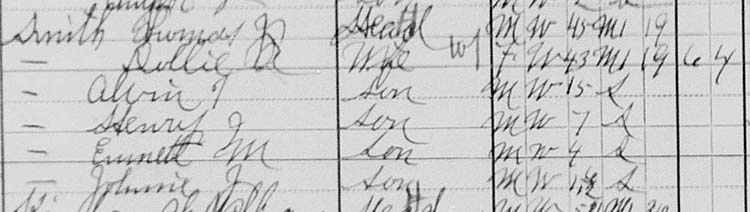 Smith Thomas J Head M W 45 M1 19
— Dollie A Wife F W 43 M1 19 6 4
— Alvin T Son M W 15 S
— Henry J Son M W 7 S
— Emmett M Son M W 4 S
— Johnnie J Son M W S
Head M W